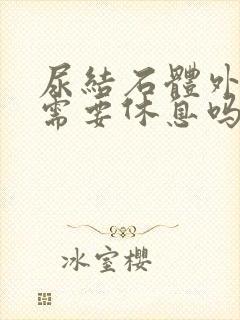 尿結石體外
需要休息吗
冰室櫻